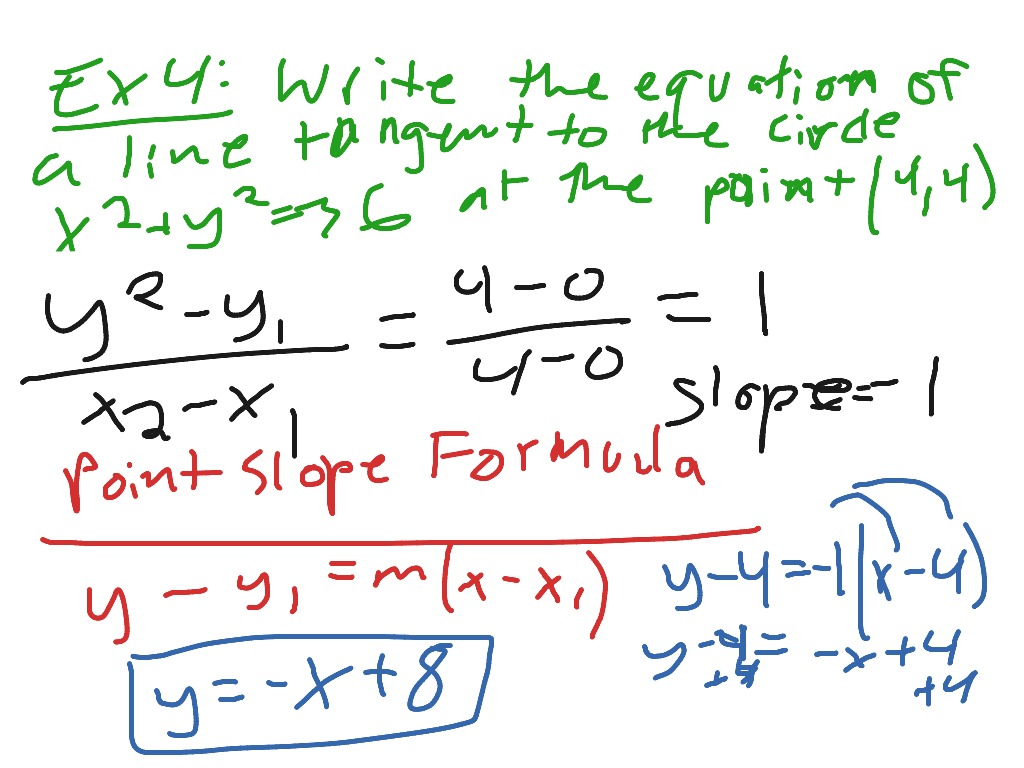 Ex 4: Write the equation of
a line tangent to the circle
x² + y² = 36 at the point (4,4)
y² - y₁ / x₂ - x₁ = 4 - 0 / 4 - 0 = 1
slope = -1
Point Slope Formula
y - y₁ = m(x - x₁)
y - 4 = -1(x - 4)
y - 4 = -x + 4
+4 +4
y = -x + 8